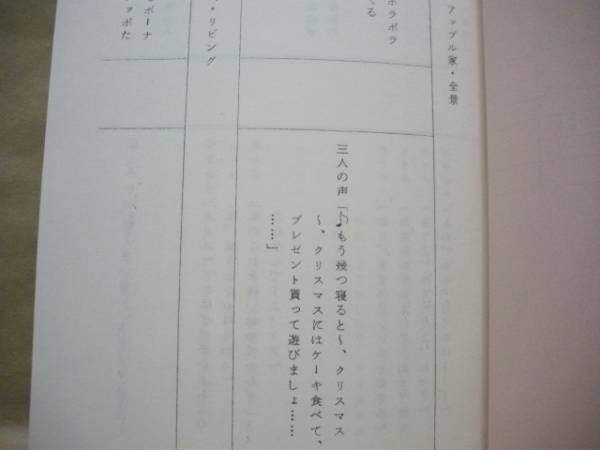 アップル家・全景
ポラポラ
くる
三人の声「♪もう幾つ寝ると〜、クリスマス
〜、クリスマスにはケーキ食べて、
プレゼント買って遊びましょ……
……」
・リビング
ボーナ
ァボた